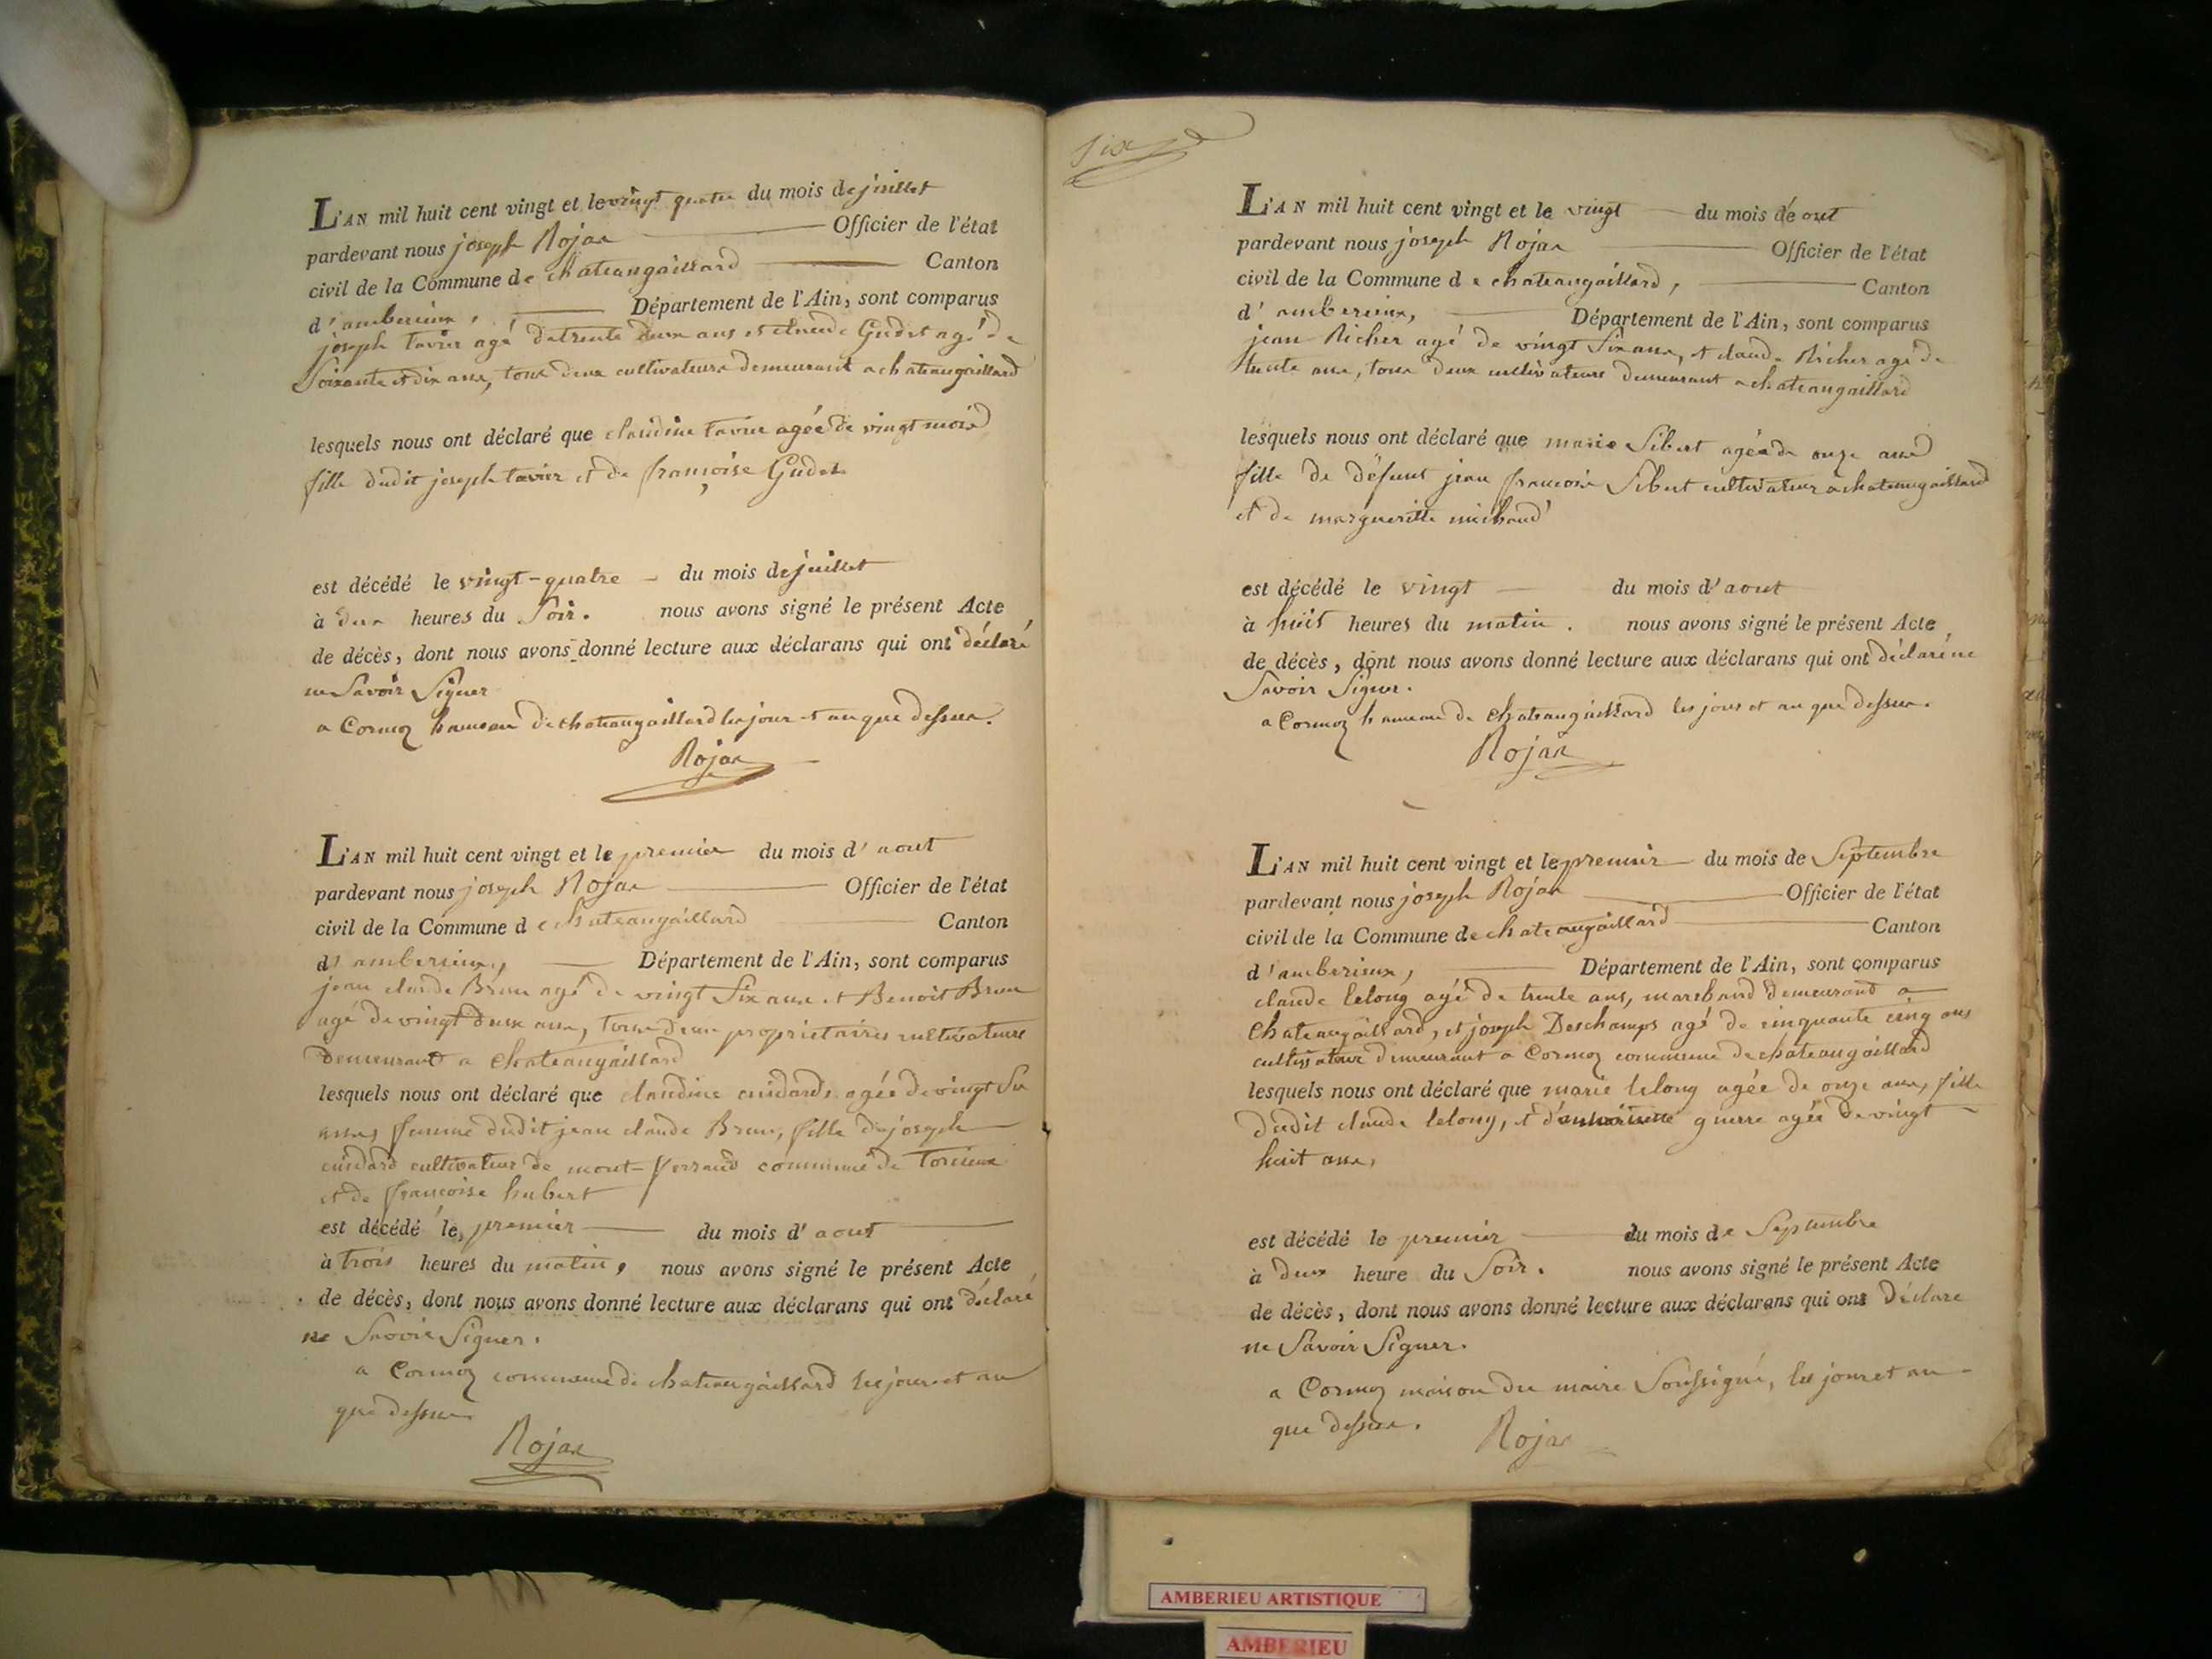 L'AN mil huit cent vingt et le vingt quatre du mois de juillet
pardevant nous joseph Rojat Officier de l'état
civil de la Commune de chateaugaillard Canton
d'amberieux, Département de l'Ain, sont comparus
joseph tavier agé de trente deux ans et claude Gudet agé de
Soixante et dix ans, tous deux cultivateurs demeurant a chateaugaillard
lesquels nous ont déclaré que claudine tavier agée de vingt mois
fille dudit joseph tavier et de françoise Gudet
est décédé le vingt-quatre du mois de juillet
à deux heures du Soir. nous avons signé le présent Acte
de décès, dont nous avons donné lecture aux déclarans qui ont déclaré
ne Savoir Signer
a Cormoz hameau de chateaugaillard les jour et an que dessus.
Rojat
L'AN mil huit cent vingt et le premier du mois d'aout
pardevant nous joseph Rojat Officier de l'état
civil de la Commune de chateaugaillard Canton
d'amberieux, Département de l'Ain, sont comparus
jean claude Brun agé de vingt Six ans et Benoit Brun
agé de vingt deux ans, tous deux proprietaires cultivateurs
demeurant a chateaugaillard
lesquels nous ont déclaré que claudine cuidard agée de vingt Six
annes femme dudit jean claude Brun, fille de joseph
cuidard cultivateur de mont-ferrand commune de torcieux
et de françoise hubert
est décédé le premier du mois d'aout
à trois heures du matin, nous avons signé le présent Acte
de décès, dont nous avons donné lecture aux déclarans qui ont déclaré
ne Savoir Signer.
a Cormoz commune de chateaugaillard les jour et an
que dessus
Rojat
Six
L'AN mil huit cent vingt et le vingt du mois de out
pardevant nous joseph Rojat Officier de l'état
civil de la Commune de chateaugaillard, Canton
d'amberieux, Département de l'Ain, sont comparus
jean Richer agé de vingt Six ans, et claude Richer agé de
trente ans, tous deux cultivateurs demeurant a chateaugaillard
lesquels nous ont déclaré que marie Sibert agée de onze ans
fille de défunt jean françois Sibert cultivateur a chateaugaillard
et de margueritte michaud
est décédé le vingt du mois d'aout
à huit heures du matin. nous avons signé le présent Acte
de décès, dont nous avons donné lecture aux déclarans qui ont déclaré ne
Savoir Signer.
a Cormoz hameau de chateaugaillard les jour et an que dessus.
Rojat
L'AN mil huit cent vingt et le premier du mois de Septembre
pardevant nous joseph Rojat Officier de l'état
civil de la Commune de chateaugaillard Canton
d'amberieux, Département de l'Ain, sont comparus
claude lelong agé de trente ans, marchand demeurant a
chateaugaillard, et joseph Deschamps agé de cinquante cinq ans
cultivateur demeurant a Cormoz commune de chateaugaillard
lesquels nous ont déclaré que marie lelong agée de onze ans, fille
dudit claude lelong, et guerre agée de vingt
huit ans,
est décédé le premier du mois de Septembre
à deux heure du Soir. nous avons signé le présent Acte
de décès, dont nous avons donné lecture aux déclarans qui ont déclaré
ne Savoir Signer.
a Cormoz maison du maire Soussigné, les jour et an
que dessus.
Rojat
AMBERIEU ARTISTIQUE
AMBERIEU